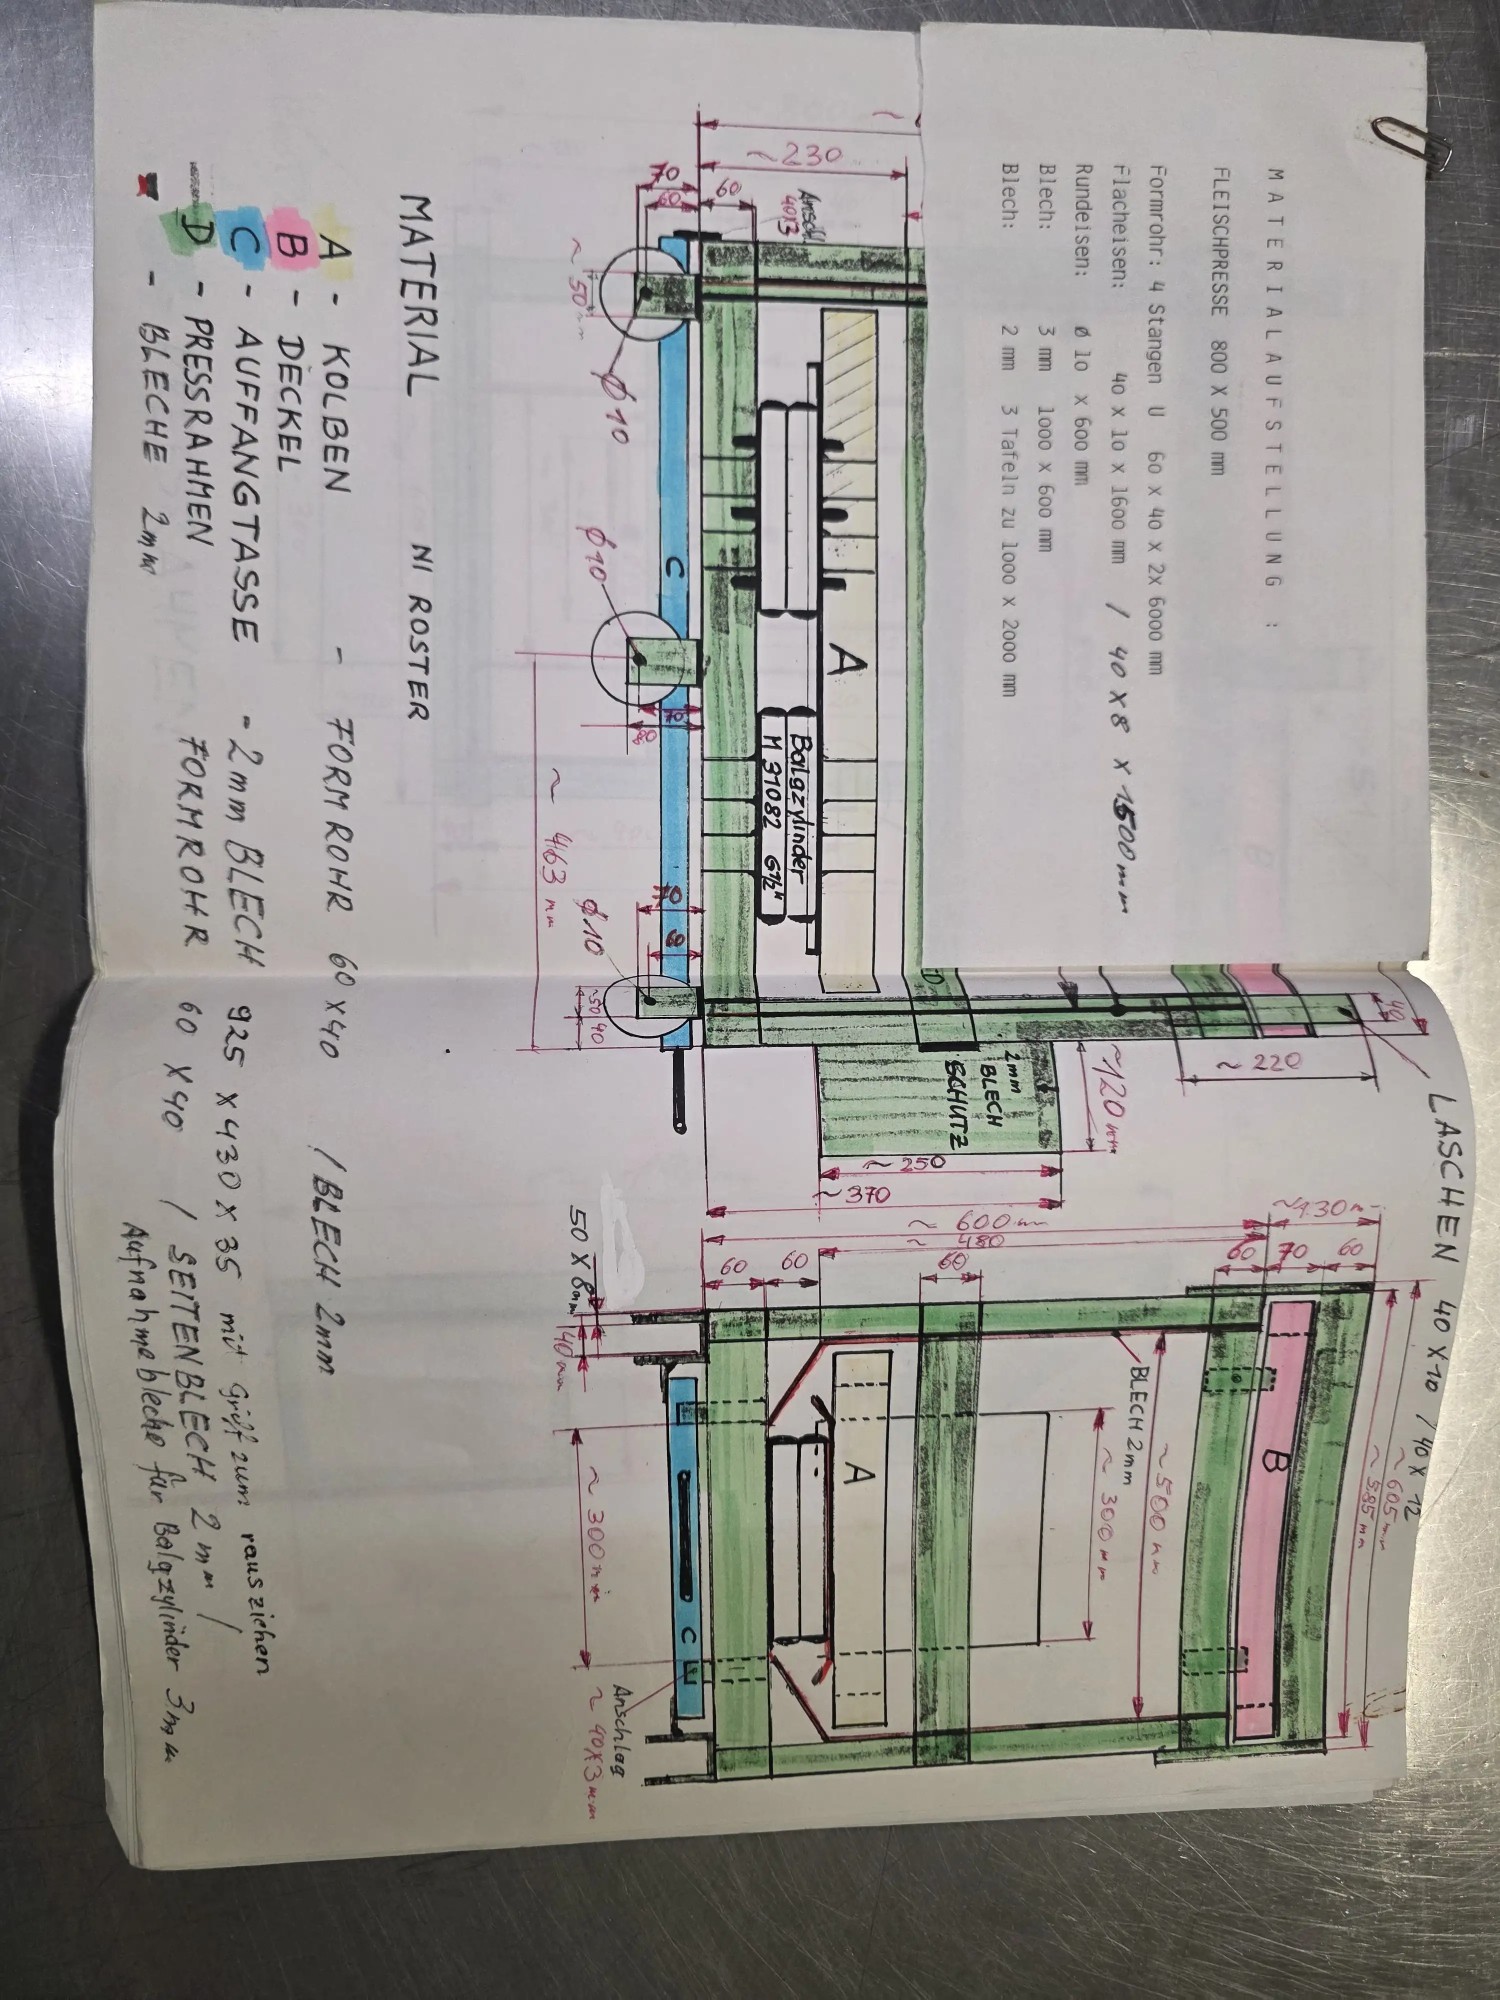 MATERIALAUFSTELLUNG :
FLEISCHPRESSE 800 X 500 mm
Formrohr: 4 Stangen U 60 x 40 x 2x 6000 mm
Flacheisen: 40 x 10 x 1600 mm / 40 X 8 X 1500 mm
Rundeisen: Ø 10 x 600 mm
Blech: 3 mm 1000 x 600 mm
Blech: 2 mm 3 Tafeln zu 1000 x 2000 mm
LASCHEN 40 X 10 / 40 X 12
~ 605 mm
~ 585 mm
40
~ 220
~ 120 mm
2mm
BLECH
SCHUTZ
~ 250
~ 370
D
~ 230
70
60
60
Anschl
40X3
~ 50 mm
Ø 10
A
Balgzylinder
M 31082 G½"
C
Ø 10
70
80
~ 463 mm
Ø 10
70
~50
40
~130 m
60
70
60
~ 600 mm
~ 480
60
60
60
B
BLECH 2mm
~ 500 mm
~ 300 mm
A
50 X 8 mm
40 mm
~ 300 mm
C
Anschlag
~ 40X3 mm
MATERIAL NIROSTER
A - KOLBEN - FORMROHR 60 X 40 / BLECH 2mm
B - DECKEL
C - AUFFANGTASSE - 2mm BLECH 925 X 430 X 35 mit Griff zum rausziehen
D - PRESSRAHMEN FORMROHR 60 X 40 / SEITENBLECH 2mm /
- BLECHE 2mm Aufnahmebleche für Balgzylinder 3mm